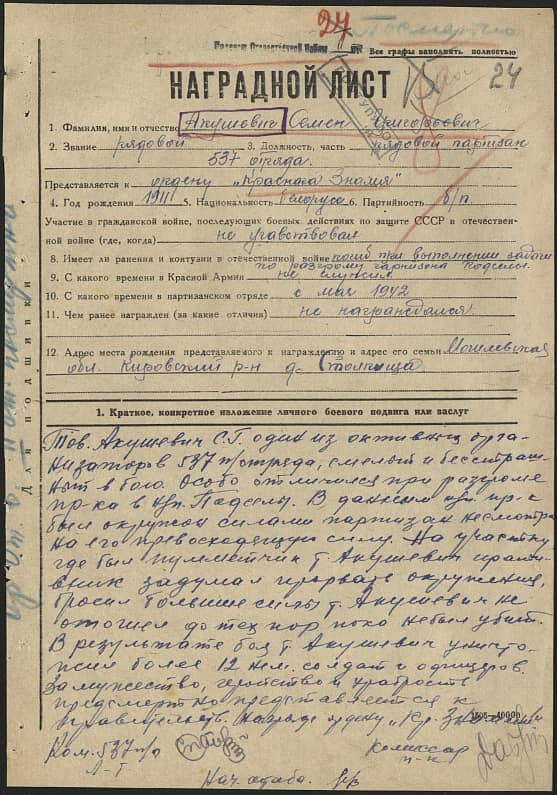 24
Посмертно
Приказ Отечественной Войны
Все графы заполнять полностью
НАГРАДНОЙ ЛИСТ
15
24
1. Фамилия, имя и отчество Акушевич Семен Григорьевич
2. Звание рядовой 3. Должность, часть рядовой партизан
537 отряда.
Представляется к ордену „Красного Знамя"
4. Год рождения 1911 5. Национальность белорусс 6. Партийность б/п.
Участие в гражданской войне, последующих боевых действиях по защите СССР в отечествен-
ной войне (где, когда) не учавствовал
8. Имеет ли ранения и контузии в отечественной войне погиб при выполнении задачи
по разгрому гарнизона Подселы.
9. С какого времени в Красной Армии не служил
10. С какого времени в партизанском отряде с мая 1942
11. Чем ранее награжден (за какие отличия) не награждался
12. Адрес места рождения представляемого к награждению и адрес его семьи Могилевская
обл. Кировский р-н д. Столпища
Для подшивки
1. Краткое, конкретное изложение личного боевого подвига или заслуг
Тов. Акушевич С.Г. один из активных орга-
низаторов 537 п/отряда, смелый и бесстраш-
ный в бою. Особо отличился при разгроме
пр-ка в нп. Подселы. В данном нп. пр-к
был окружон силами партизан несмотря
на его превосходящую силу. На участке
где был пулеметчик т. Акушевич против-
ник задумал прорвать окружение,
бросил большие силы т. Акушевич не
отошел до тех пор поко небыл убит.
В результате боя т. Акушевич уничто-
жил более 12 нем. солдат и офицеров.
За мужество, геройство и храбрость
предсмертно представляется к
правительств. награде ордену „Кр. Знамени
1505—40000
Ком. 537 п/о
Л-т
Комиссар
п-к
Нач. штаба.